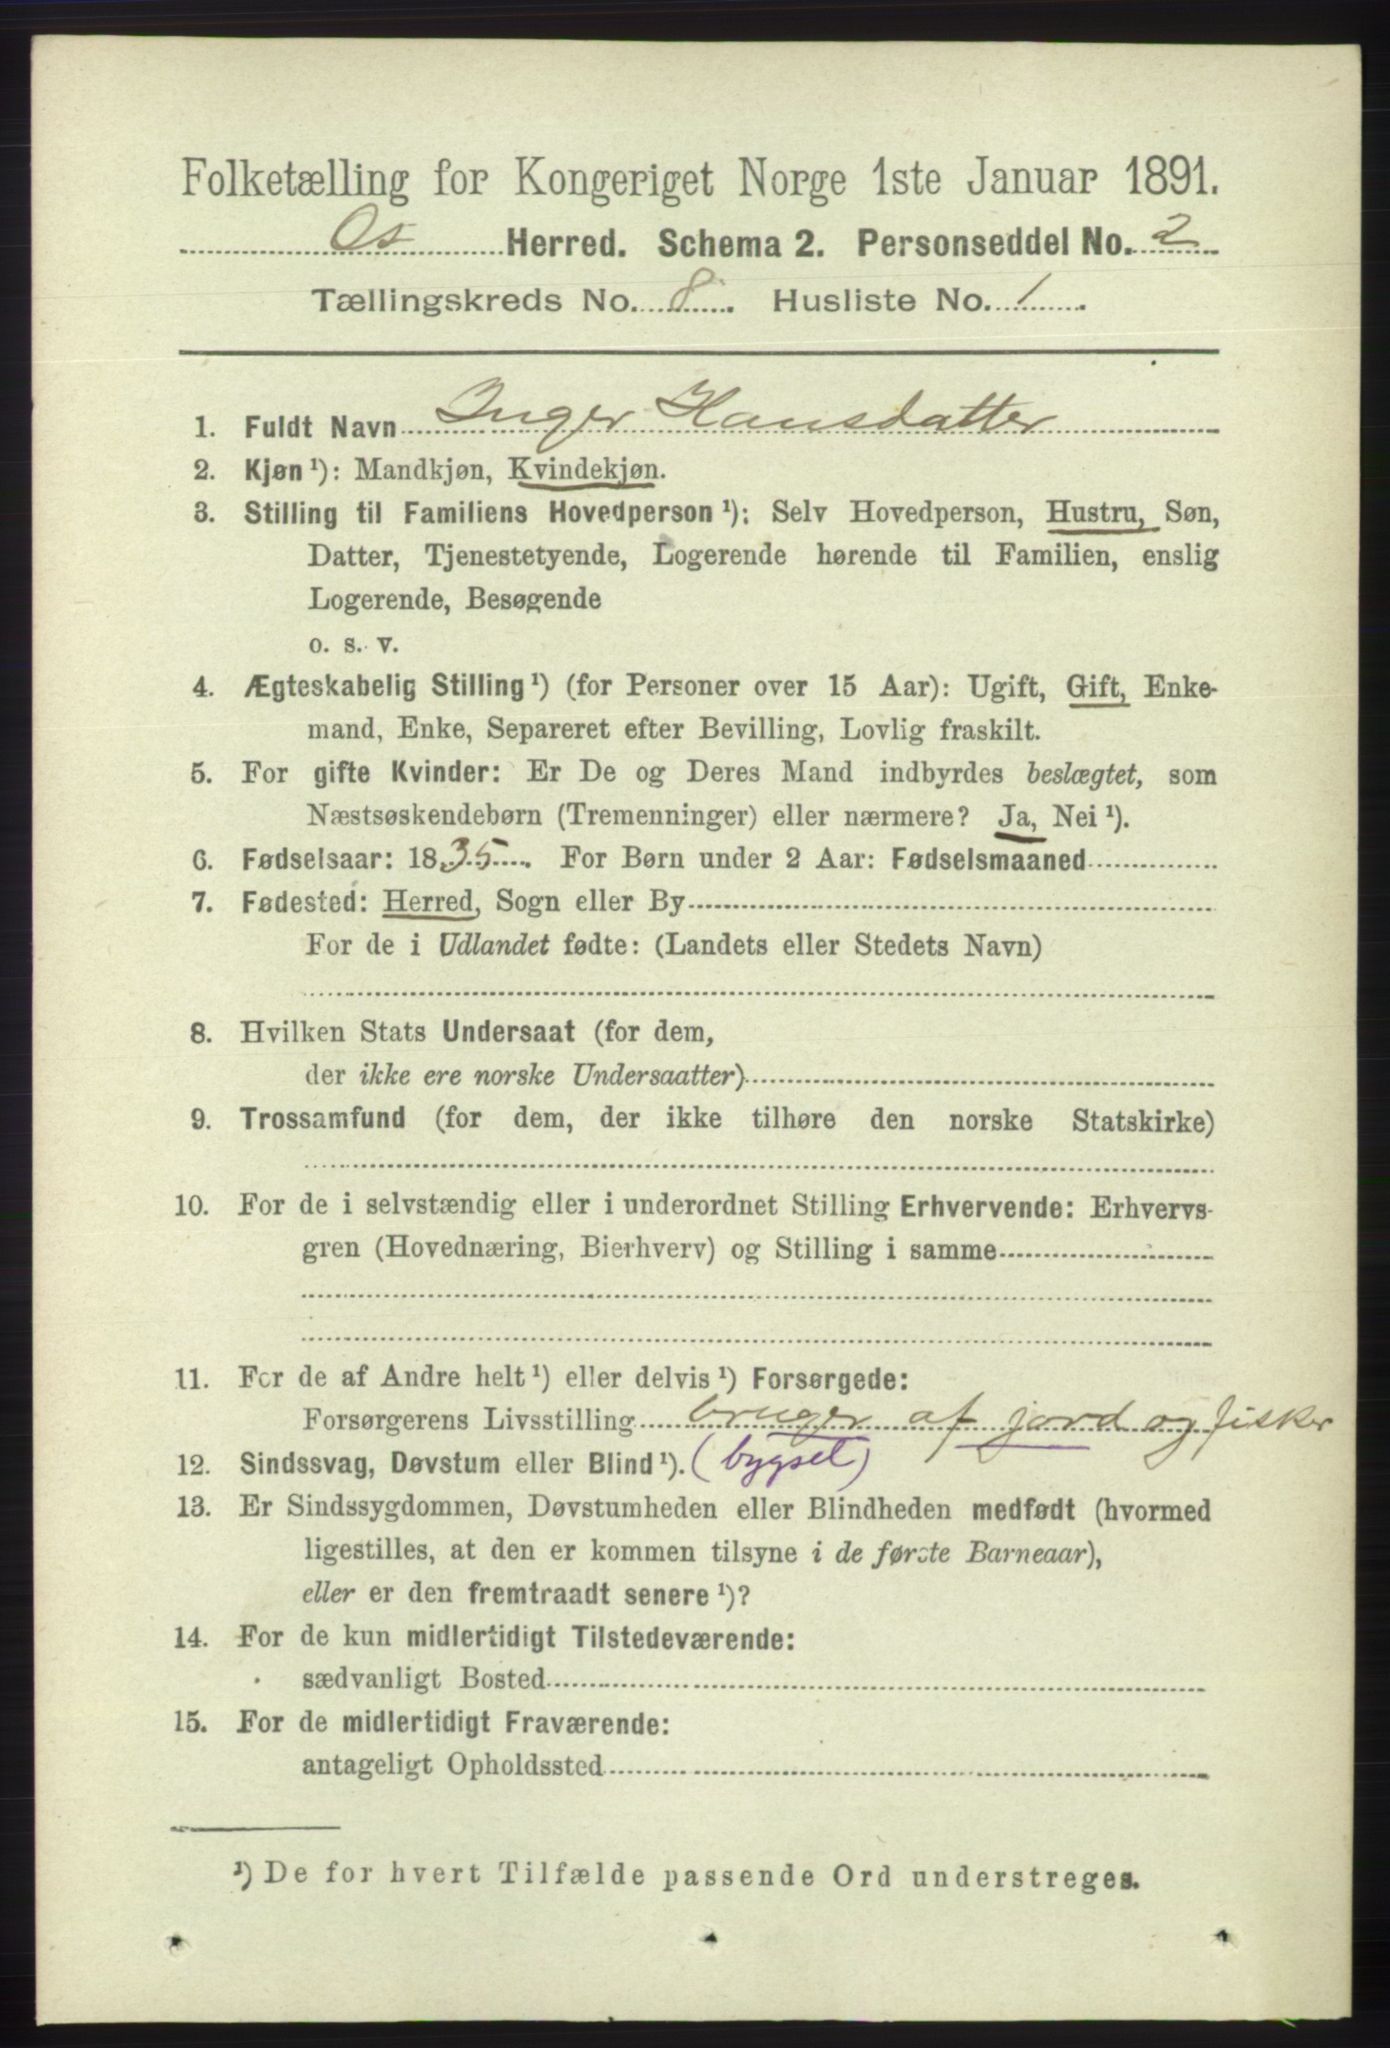 Folketælling for Kongeriget Norge 1ste Januar 1891.
Os Herred. Schema 2. Personseddel No. 2
Tællingskreds No. 8. Husliste No. 1.
1. Fuldt Navn Inger Hansdatter
2. Kjøn ¹): Mandkjøn, Kvindekjøn.
3. Stilling til Familiens Hovedperson ¹): Selv Hovedperson, Hustru, Søn,
Datter, Tjenestetyende, Logerende hørende til Familien, enslig
Logerende, Besøgende
o. s. v.
4. Ægteskabelig Stilling ¹) (for Personer over 15 Aar): Ugift, Gift, Enke-
mand, Enke, Separeret efter Bevilling, Lovlig fraskilt.
5. For gifte Kvinder: Er De og Deres Mand indbyrdes beslægtet, som
Næstsøskendebørn (Tremenninger) eller nærmere? Ja, Nei ¹).
6. Fødselsaar: 1835. For Børn under 2 Aar: Fødselsmaaned
7. Fødested: Herred, Sogn eller By
For de i Udlandet fødte: (Landets eller Stedets Navn)
8. Hvilken Stats Undersaat (for dem,
der ikke ere norske Undersaatter)
9. Trossamfund (for dem, der ikke tilhøre den norske Statskirke)
10. For de i selvstændig eller i underordnet Stilling Erhvervende: Erhvervs-
gren (Hovednæring, Bierhverv) og Stilling i samme
11. For de af Andre helt ¹) eller delvis ¹) Forsørgede:
Forsørgerens Livsstilling bruger af jord og fisker
12. Sindssvag, Døvstum eller Blind ¹). (bygsel)
13. Er Sindssygdommen, Døvstumheden eller Blindheden medfødt (hvormed
ligestilles, at den er kommen tilsyne i de første Barneaar),
eller er den fremtraadt senere ¹)?
14. For de kun midlertidigt Tilstedeværende:
sædvanligt Bosted
15. For de midlertidigt Fraværende:
antageligt Opholdssted
¹) De for hvert Tilfælde passende Ord understreges.